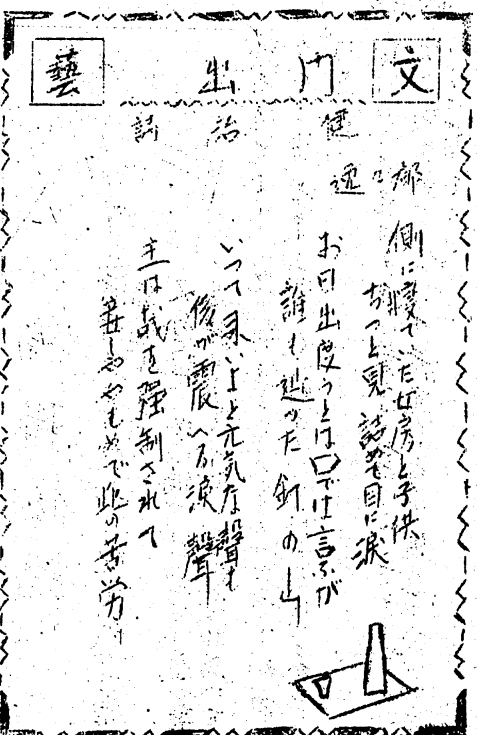 文藝
門出
健治 詩
都々逸
側に寝ていた女房と子供
ぢつと見詰めて目に涙
お目出度うとは口では言ふが
誰も
いつて来いよと元気な聲も
後が震へる涙聲
主は戦を強制されて
妾しややもめで此の苦労